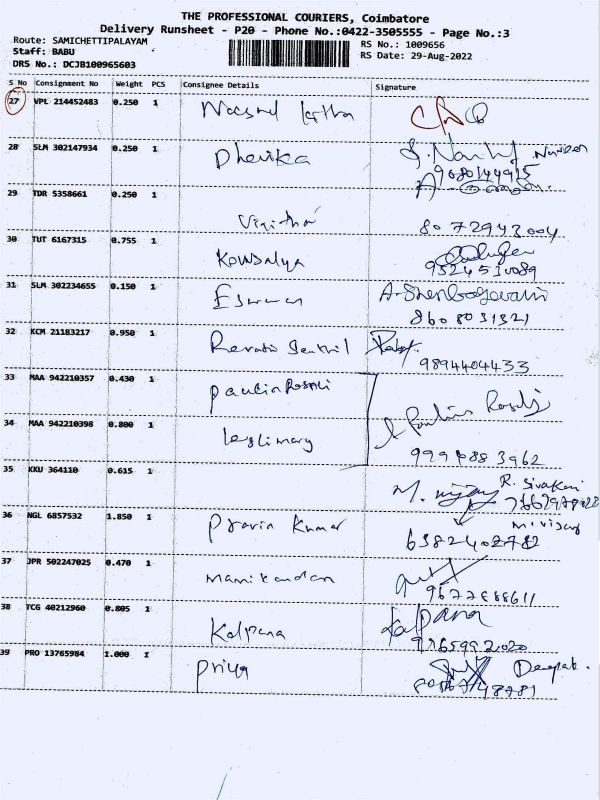 THE PROFESSIONAL COURIERS, Coimbatore
Delivery Runsheet - P20 - Phone No.:0422-3505555 - Page No.:3
Route: SAMICHETTIPALAYAM
Staff: BABU
DRS No.: DCJB100965603
RS No.: 1009656
RS Date: 29-Aug-2022
S No Consignment No Weight PCS Consignee Details Signature
27 VPL 214452483 0.250 1
28 SLM 302147934 0.250 1 Dhevika Naveen
9080144915
29 TDR 5358661 0.250 1
8072943004
30 TUT 6167315 0.755 1 Kowsalya
9524530089
31 SLM 302234655 0.150 1 A. Shenbagavalli
8608031321
32 KCM 21183217 0.950 1 Revathi Senthil
9894404433
33 MAA 942210357 0.430 1
34 MAA 942210398 0.800 1 leslimary
35 KKU 364110 0.615 1 R. Sivakani
36 NGL 6857532 1.850 1 Pravin Kumar M. vijay
6382402782
37 JPR 502247025 0.470 1 Manikandan
38 TCG 40212960 0.805 1 Kalpana Kalpana
39 PRO 13765984 1.000 1 Priya Deepak.